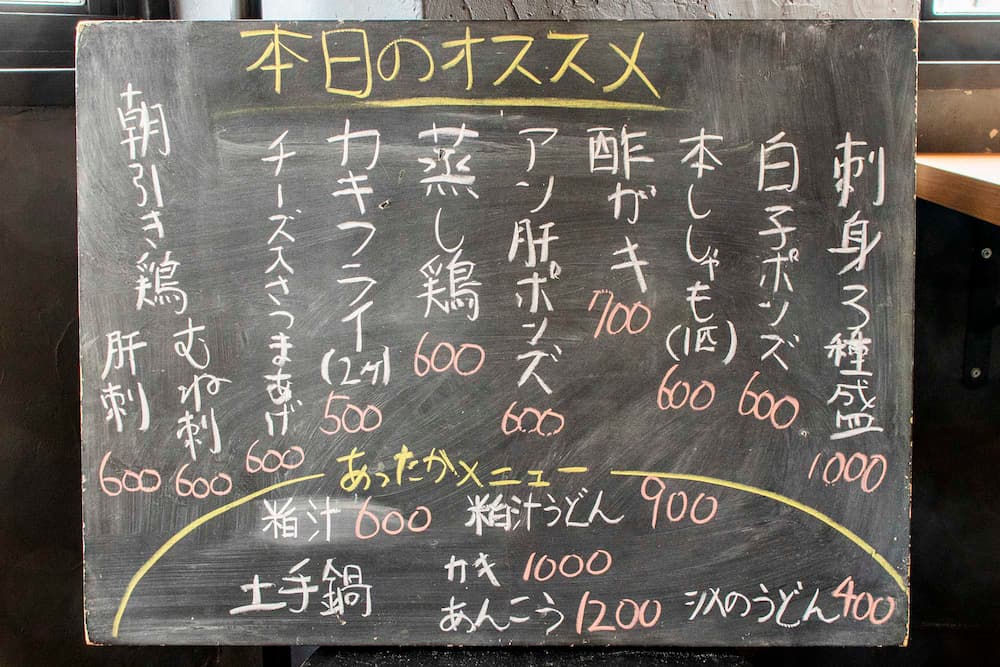 本日のオススメ
刺身3種盛 1000
白子ポンズ 600
本ししゃも(1匹) 600
酢ガキ 700
アン肝ポンズ 600
蒸し鶏 600
カキフライ(2ケ) 500
チーズ入さつまあげ 600
朝引き鶏
むね刺 600
肝刺 600
あったかメニュー
粕汁 600
粕汁うどん 900
土手鍋
カキ 1000
あんこう 1200
〆のうどん 400